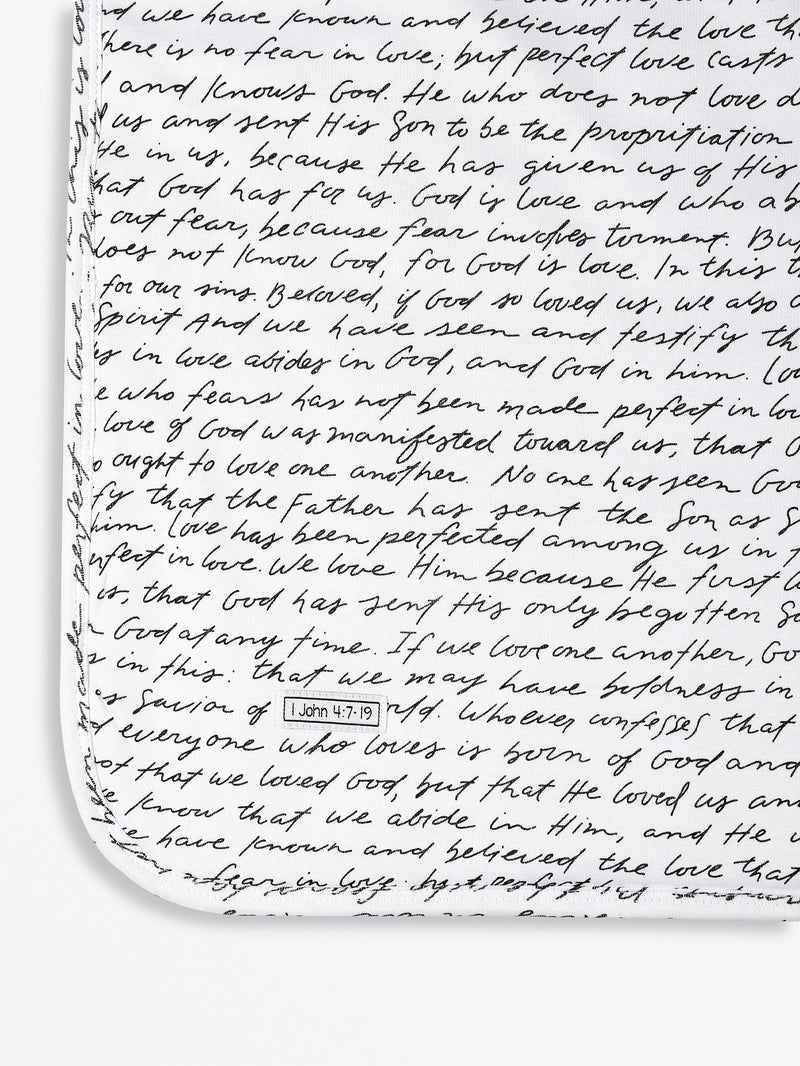 and we have known and believed the love
there is no fear in love; but perfect love casts
and knows God. He who does not love
us and sent His Son to be the propritiation
He in us, because He has given us of His
that God has for us. God is love and who
out fear, because fear involves torment. But
does not know God, for God is love. In this
for our sins. Beloved, if God so loved us, we also
Spirit And we have seen and testify
in love abides in God, and God in him.
who fears has not been made perfect in
love of God was manifested toward us, that
ought to love one another. No one has seen God
that the Father has sent the Son as
him. Love has been perfected among us in
perfect in love. We love Him because He first
us, that God has sent His only begotten
God at any time. If we love one another,
in this: that we may have boldness in
as Savior of rld. Whoever confesses that
1 John 4:7-19
everyone who loves is born of God and
not that we loved God, but that He loved us and
we know that we abide in Him, and He
we have known and believed the love that
fear in love. but perfect
been made perfect in love.